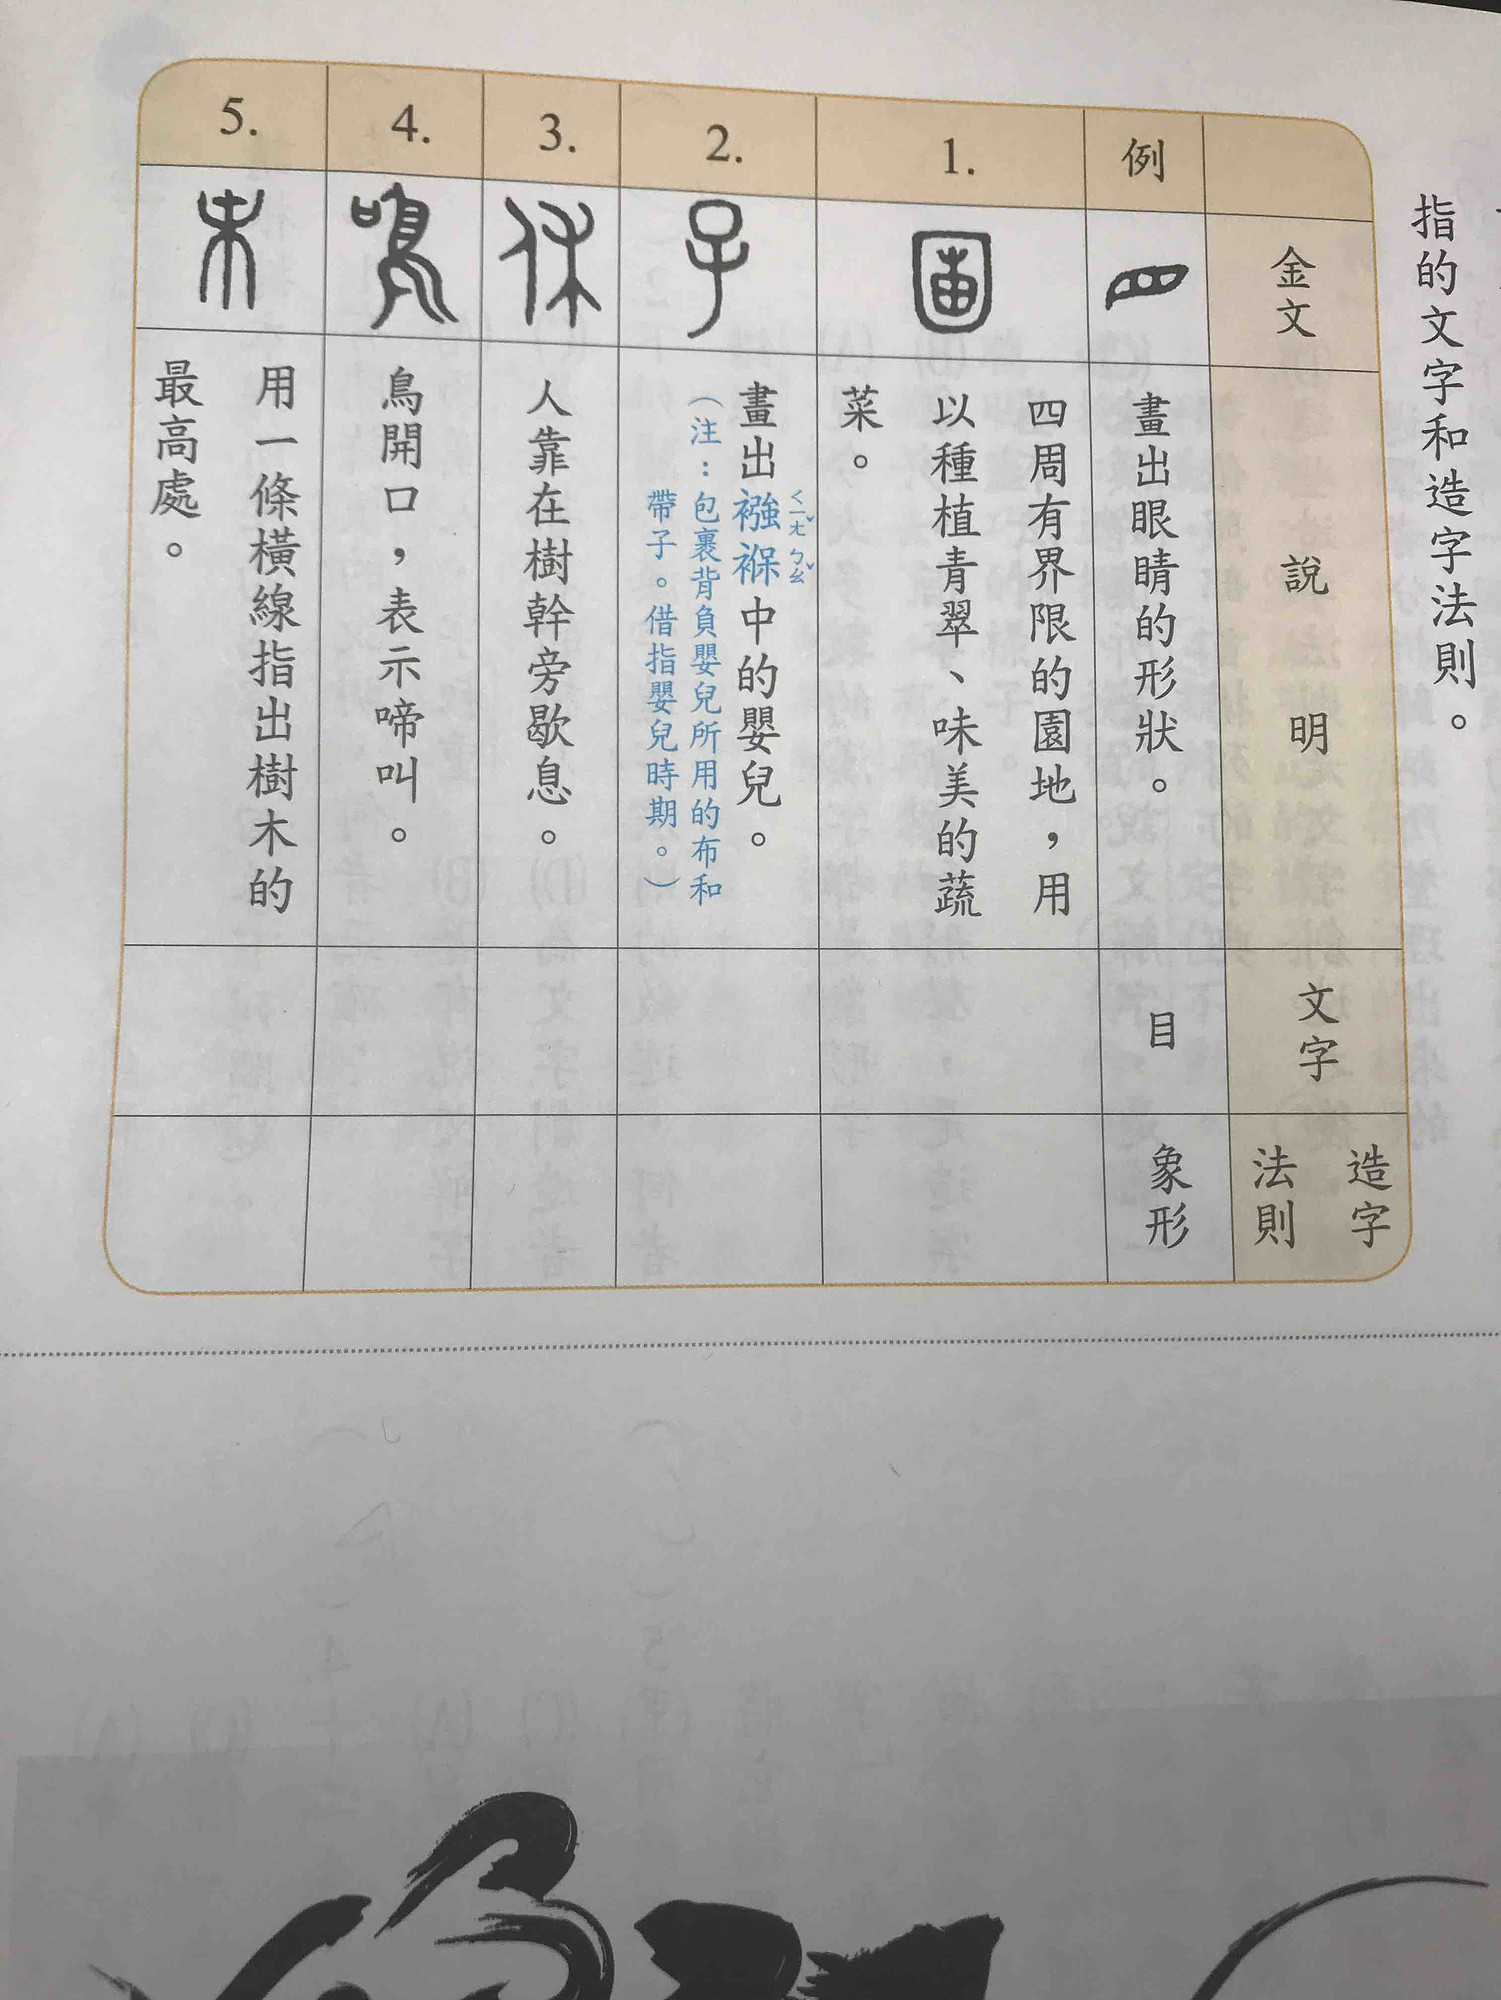 指的文字和造字法則。
金文
說明
文字
造字
法則
例
畫出眼睛的形狀。
目
象形
1.
四周有界限的園地，用
以種植青翠、味美的蔬
菜。
2.
畫出襁褓中的嬰兒。
ㄑㄧㄤˇ ㄅㄠˇ
（注：包裹背負嬰兒所用的布和
帶子。借指嬰兒時期。）
3.
人靠在樹幹旁歇息。
4.
鳥開口，表示啼叫。
5.
用一條橫線指出樹木的
最高處。